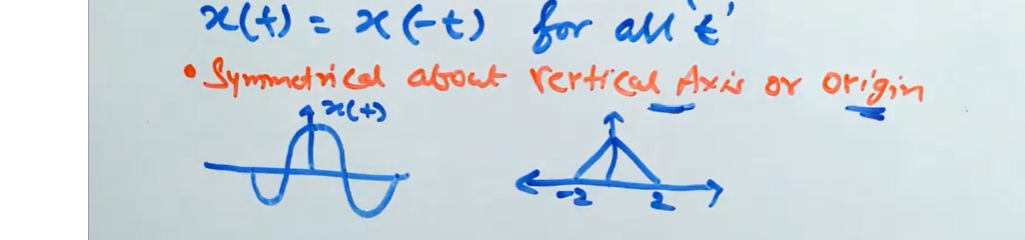 x(t) = x(-t) for all 't'
• Symmetrical about vertical Axis or origin
x(t)
-2 2